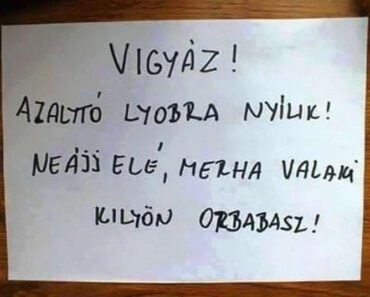 VIGYÁZ!
AZALYTÓ LYOBRA NYÍLIK!
NEÁJJ ELÉ, MERHA VALAKI
KILYÖN ORBABASZ!